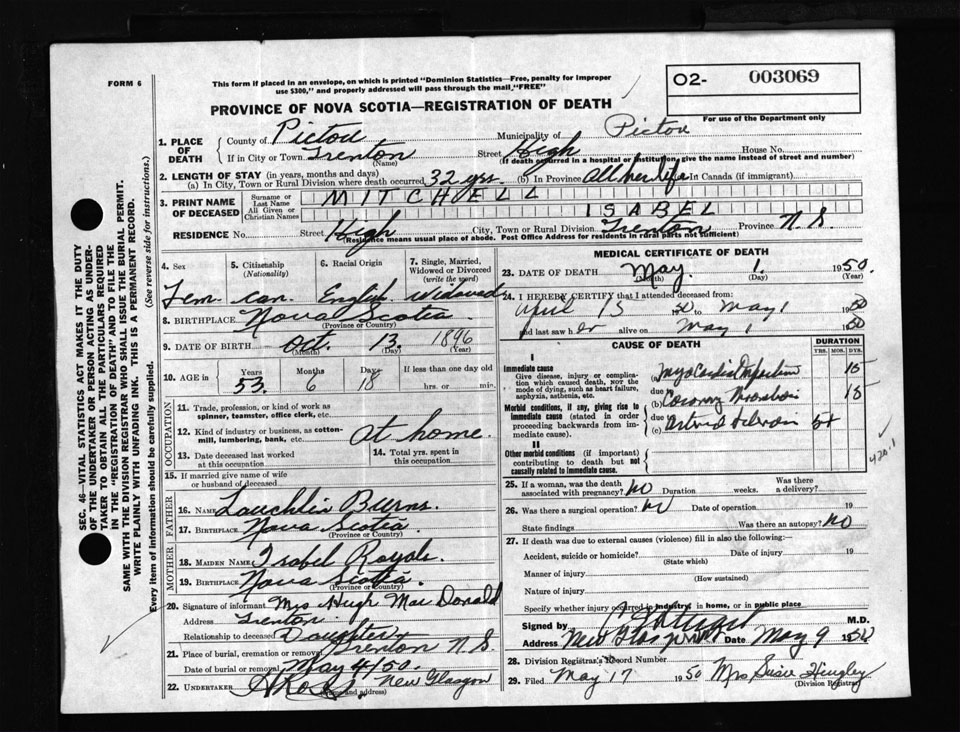 FORM 6
This form if placed in an envelope, on which is printed "Dominion Statistics—Free, penalty for improper
use $300," and properly addressed will pass through the mail "FREE"
PROVINCE OF NOVA SCOTIA—REGISTRATION OF DEATH
O2- 003069
For use of the Department only
SEC. 46—VITAL STATISTICS ACT MAKES IT THE DUTY
OF THE UNDERTAKER OR PERSON ACTING AS UNDER-
TAKER TO OBTAIN ALL THE PARTICULARS REQUIRED
IN THE "REGISTRATION OF DEATH" AND TO FILE THE
SAME WITH THE DIVISION REGISTRAR WHO SHALL ISSUE THE BURIAL PERMIT.
WRITE PLAINLY WITH UNFADING INK. THIS IS A PERMANENT RECORD.
(See reverse side for instructions.)
Every item of information should be carefully supplied.
1. PLACE OF DEATH
County of Pictou Municipality of Pictou
If in City or Town Trenton (Name) Street High House No.
(If death occurred in a hospital or institution, give the name instead of street and number)
2. LENGTH OF STAY (in years, months and days)
(a) In City, Town or Rural Division where death occurred 32 yrs. (b) In Province All her life In Canada (if immigrant)
3. PRINT NAME OF DECEASED
Surname or Last Name MITCHELL
All Given or Christian Names ISABEL
RESIDENCE No. Street High City, Town or Rural Division Trenton Province N.S.
(Residence means usual place of abode. Post Office Address for residents in rural parts not sufficient)
4. Sex
5. Citizenship (Nationality)
6. Racial Origin
7. Single, Married, Widowed or Divorced (write the word)
Fem can. English widowed
8. BIRTHPLACE Nova Scotia
(Province or Country)
9. DATE OF BIRTH Oct. 13 1896
(Month) (Day) (Year)
10. AGE in Years Months Days If less than one day old
53 6 18 hrs. or min.
OCCUPATION
11. Trade, profession, or kind of work as spinner, teamster, office clerk, etc.
12. Kind of industry or business, as cotton-mill, lumbering, bank, etc. at home.
13. Date deceased last worked at this occupation
14. Total yrs. spent in this occupation
15. If married give name of wife or husband of deceased
FATHER
16. NAME Lauchlin Burns.
17. BIRTHPLACE Nova Scotia
(Province or Country)
MOTHER
18. MAIDEN NAME Isabel
19. BIRTHPLACE Nova Scotia.
(Province or Country)
20. Signature of informant Mrs Hugh MacDonald
Address Trenton
Relationship to deceased Daughter
21. Place of burial, cremation or removal Trenton N.S.
Date of burial or removal May 4/50.
22. UNDERTAKER New Glasgow
(Name and address)
MEDICAL CERTIFICATE OF DEATH
23. DATE OF DEATH May. 1. 1950.
(Month) (Day)
24. I HEREBY CERTIFY that I attended deceased from:
April 15 50 to May 1 1950
and last saw her alive on May 1 1950
CAUSE OF DEATH
DURATION
YRS. MOS. DYS.
I
Immediate cause
Give disease, injury or complication which caused death, NOT the mode of dying, such as heart failure, asphyxia, asthenia, etc.
(a) Myocardial Infarction 15
due to
(b) Coronary Thrombosis 15
Morbid conditions, if any, giving rise to immediate cause (stated in order proceeding backwards from immediate cause).
due to
(c)
II
Other morbid conditions (if important) contributing to death but not causally related to immediate cause.
420.1
25. If a woman, was the death associated with pregnancy? No Duration weeks. Was there a delivery?
26. Was there a surgical operation? No Date of operation 19
State findings Was there an autopsy? No
27. If death was due to external causes (violence) fill in also the following:—
Accident, suicide or homicide? Date of injury 19
(State which)
Manner of injury
(How sustained)
Nature of injury
Specify whether injury occurred in industry, in home, or in public place
Signed by M.D.
Address New Glasgow Date May 9 1950
28. Division Registrar's Record Number
29. Filed May 17 1950 Mrs Susie Hingley
(Division Registrar)